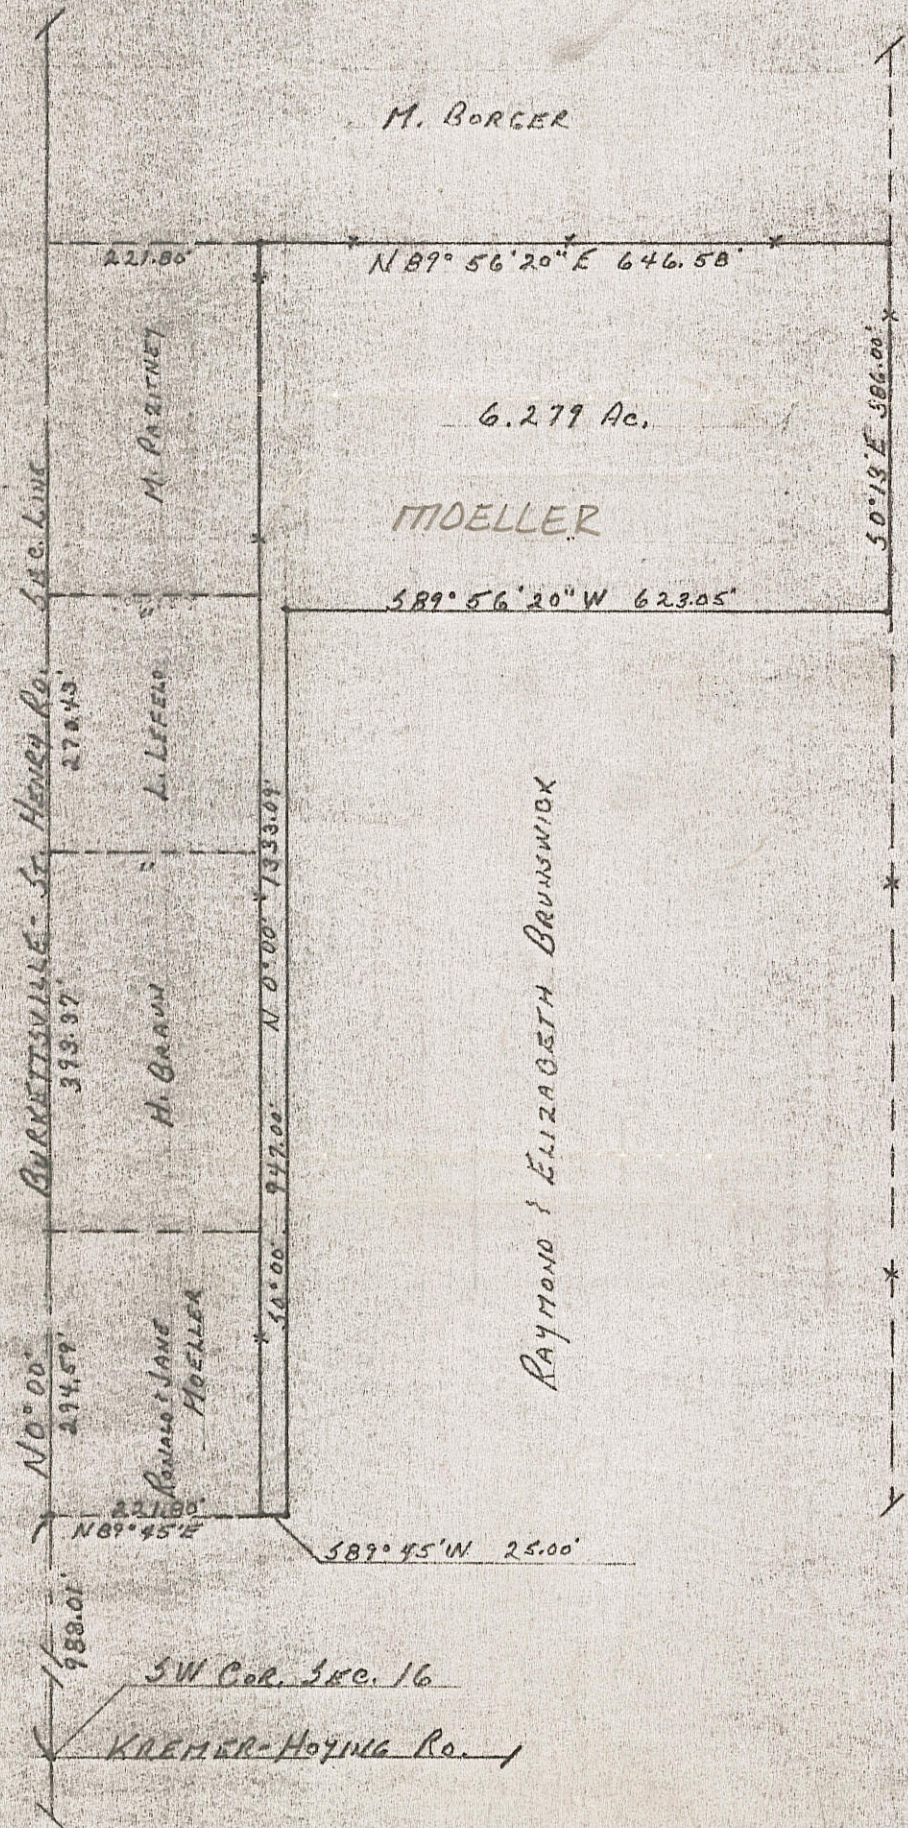 M. BORGER
221.80'
N 89° 56' 20" E 646.58'
M. PAZITNEY
6.279 Ac.
S 0° 13' E 386.00'
MOELLER
S 89° 56' 20" W 623.05'
BURKETTSVILLE - ST. HENRY RD. SEC. LINE
N 0° 00'
270.43'
L. LEFELD
"
N 0° 00' 1333.09'
393.37'
H. BRAUN
"
S 0° 00' 947.00'
RAYMOND & ELIZABETH BRUNSWICK
294.59'
RONALD & JANE
MOELLER
221.80'
N 89° 45' E
S 89° 45' W 25.00'
988.01'
SW COR. SEC. 16
KREMER-HOYING RD.